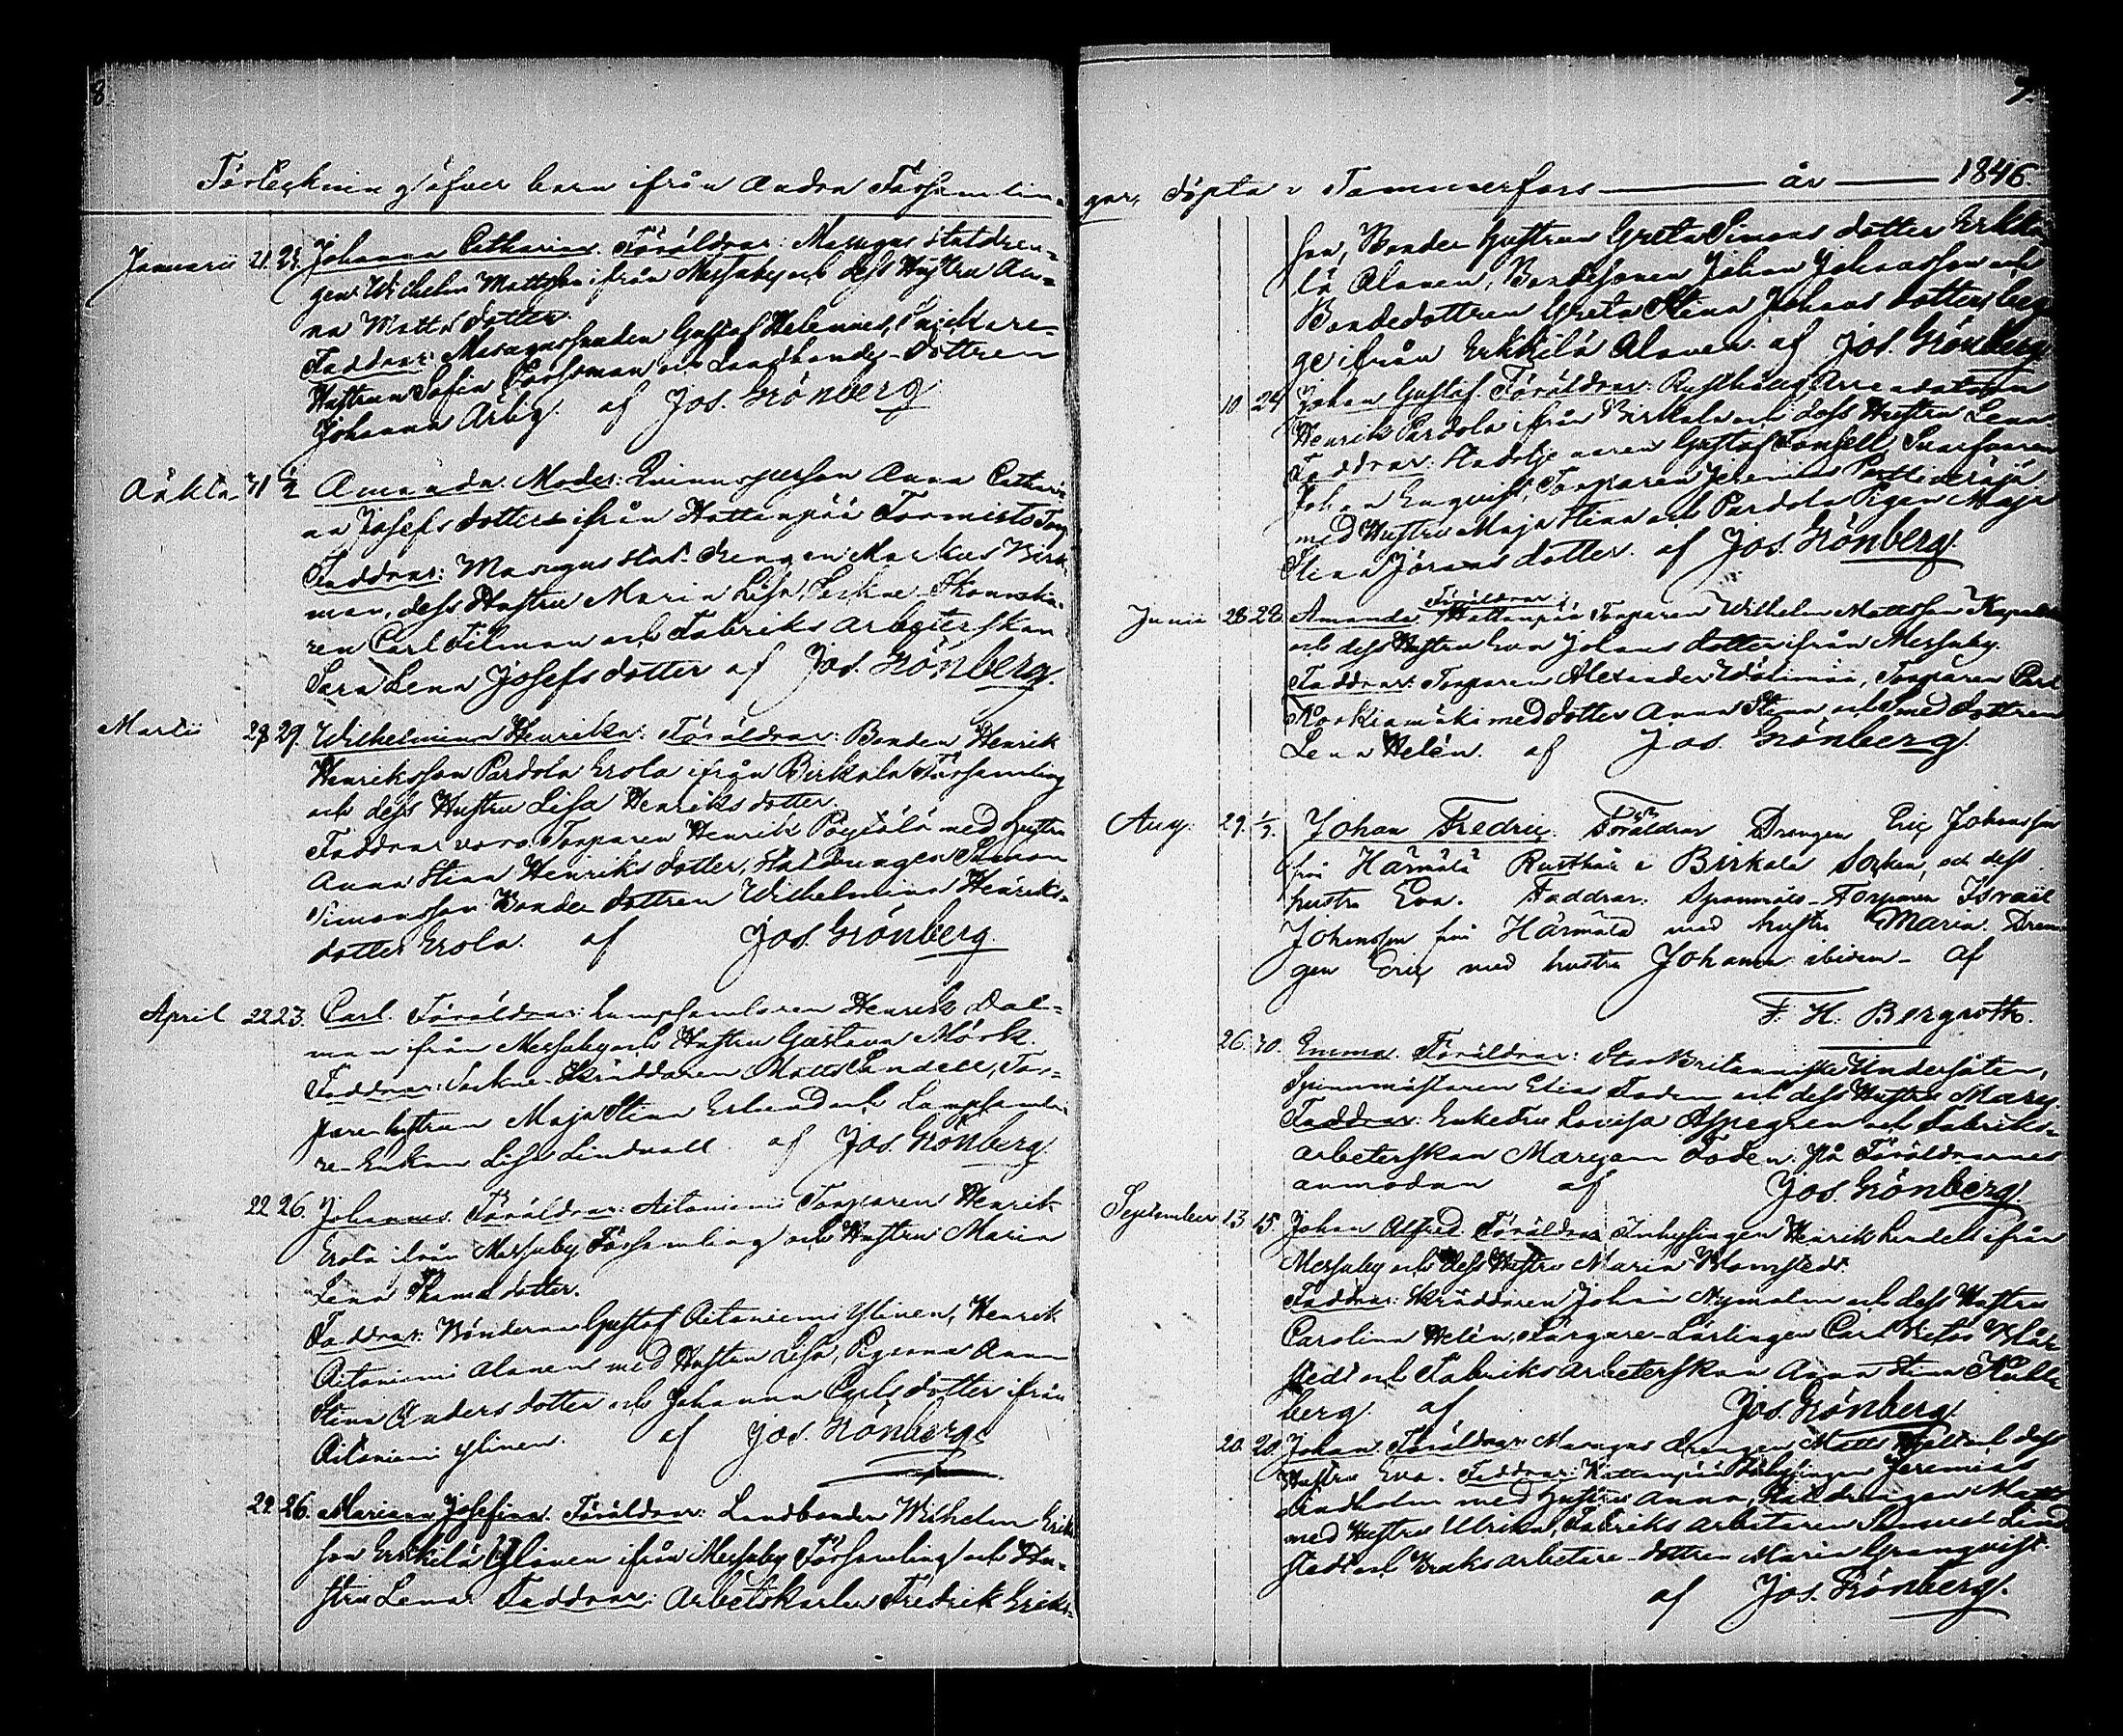 8
Förteckning öfver barn ifrån Andra Församlin-
Januarii 21. 25. Johanna Catharina. Föräldrar: Masugns Statdren-
gen Wilhelm Mattsson ifrån Messuby och dess Hustru An-
na Matts dotter.
Faddrar: Masugnssmeden Gustaf Helenius, Snickare-
Hustrun Sofia Forssman och Landbonde-dottren
Johanna Arbig. af Jos. Grönberg.
31 1/2 Amanda. Moder: Qvinnsperson Anna Cathari-
na Josefs dotter ifrån Hattanpää Tormisto Torp
Faddrar: Masugns Stat-drengen Markus Birk-
man, dess Hustru Maria Lisa, Sockne-Skomaka-
ren Carl Filman och Fabriks arbeterskan
Sara Lena Josefs dotter af Jos. Grönberg.
Martii 28. 29. Wilhelmina Henrika. Föräldrar: Bonden Henrik
Henriksson Pardola Erola ifrån Birkala Församling
och dess Hustru Lisa Henriks dotter.
Faddrar voro: Torparen Henrik Pöytälä med hustru
Anna Stina Henriks dotter, Statdrengen Simon
Simonsson Bonde dottren Wilhelmina Henriks-
dotter Erola. af Jos. Grönberg.
April 22 23. Carl. Föräldrar: Lumpsamlaren Henrik Dal-
man ifrån Messuby och Hustru Gustava Mörk.
Faddrar: Sockne-Skräddaren Matts Landell, Tor-
pare-hustrun Maja Stina Erlund och Lumpsamla-
re-Enkan Lisa Lindvall. af Jos. Grönberg.
22 26. Johannes. Föräldrar: Aitoniemi Torparen Henrik
Erola ifrån Messuby Församling och Hustru Maria
Lena Thomas dotter.
Faddrar: Bönderna Gustaf Aitoniemi Ylinen, Henrik
Aitoniemi Alanen med Hustru Lisa, Pigorna Anna
Stina Anders dotter och Johanna Carls dotter ifrån
Aitoniemi Ylinen. af Jos. Grönberg.
22. 26. Mariana Josefina. Föräldrar: Landbonden Wilhelm Eriks-
son Erkkilä Ylinen ifrån Messuby Församling och Hu-
stru Lena. Faddrar: Arbetskarlen Fredrik Eriks-
7.
gar, döpta i Tammerfors — år — 1846
son, Bonden Hustrun Greta Simons dotter Erkki-
lä Alanen, Bondesonen Johan Johansson och
Bondedottren Greta Stina Johans dotter, beg-
ge ifrån Erkkilä Alanen. af Jos. Grönberg
10. 24. Johan Gustaf. Föräldrar: Rusthålls Arrendatorn
Henrik Pardola ifrån Birkala och dess Hustru Lena
Faddrar: Stadstjenaren Gustaf Tonsell, Svarfvaren
Johan Enqvist, Torparen Jeremias
med Hustru Maja Stina och Pardola Pigan Maja
Stina Jörans dotter. af Jos. Grönberg.
Junii 28. 28. Amanda. Föräldrar: Hattanpää Torparen Wilhelm Mattsson
och dess Hustru Eva Johans dotter ifrån Messuby.
Faddrar: Torparen Alexander Wälimäa, Torparen Carl
Koskiamäki med dotter Anna Stina och Smed dottren
Lena Helén. af Jos. Grönberg.
Aug. 29. 1/9. Johan Fredric. Föräldrar Drengen Eric Johansson
från Härmälä Rusthåll i Birkala Socken, och dess
hustru Eva. Faddrar: Torparen Israel
Johansson från Härmälä med hustru Maria. Dren-
gen Eric med hustru Johanna ibidem. af
F. H. Bergroth.
26. 30. Emma. Föräldrar: Stor Britanniske Undersåten,
Spinnmästaren Elias Foden och dess Hustru Mary.
Faddrar: Enkefru Lovisa Aspegren och Fabriks-
arbeterskan Maryam Foden. På Föräldrarnes
anmodan af Jos. Grönberg.
September 13 15. Johan Alfred. Föräldrar Inhysingen Henrik Lindell ifrån
Messuby och dess Hustru Maria Blomstedt.
Faddrar: Skräddaren Johan Nymalm och dess Hustru
Carolina Helén, Färgare-Lärlingen Carl
stedt och Fabriks arbeterskan Anna Stina Kull-
berg. af Jos. Grönberg.
20. 20. Johan. Föräldrar: Masugns drengen Matts och dess
Hustru Eva. Faddrar: Hattanpää Inhysingen Jeremias
Lindholm med Hustru Anna, Statdrengen Matts
med Hustru Ulrika, Fabriks arbetaren Samuel Lind-
stedt och Bruks arbetare-dottren Maria Granqvist.
af Jos. Grönberg.